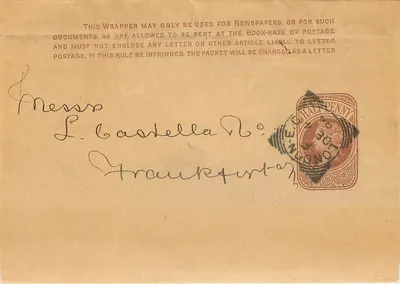 THIS WRAPPER MAY ONLY BE USED FOR NEWSPAPERS, OR FOR SUCH
DOCUMENTS AS ARE ALLOWED TO BE SENT AT THE BOOK-RATE OF POSTAGE
AND MUST NOT ENCLOSE ANY LETTER OR OTHER ARTICLE LIABLE TO LETTER
POSTAGE. IF THIS RULE BE INFRINGED, THE PACKET WILL BE CHARGED AS A LETTER
Messrs
L. Castella
Frankfurt
HALFPENNY
LONDON E.C